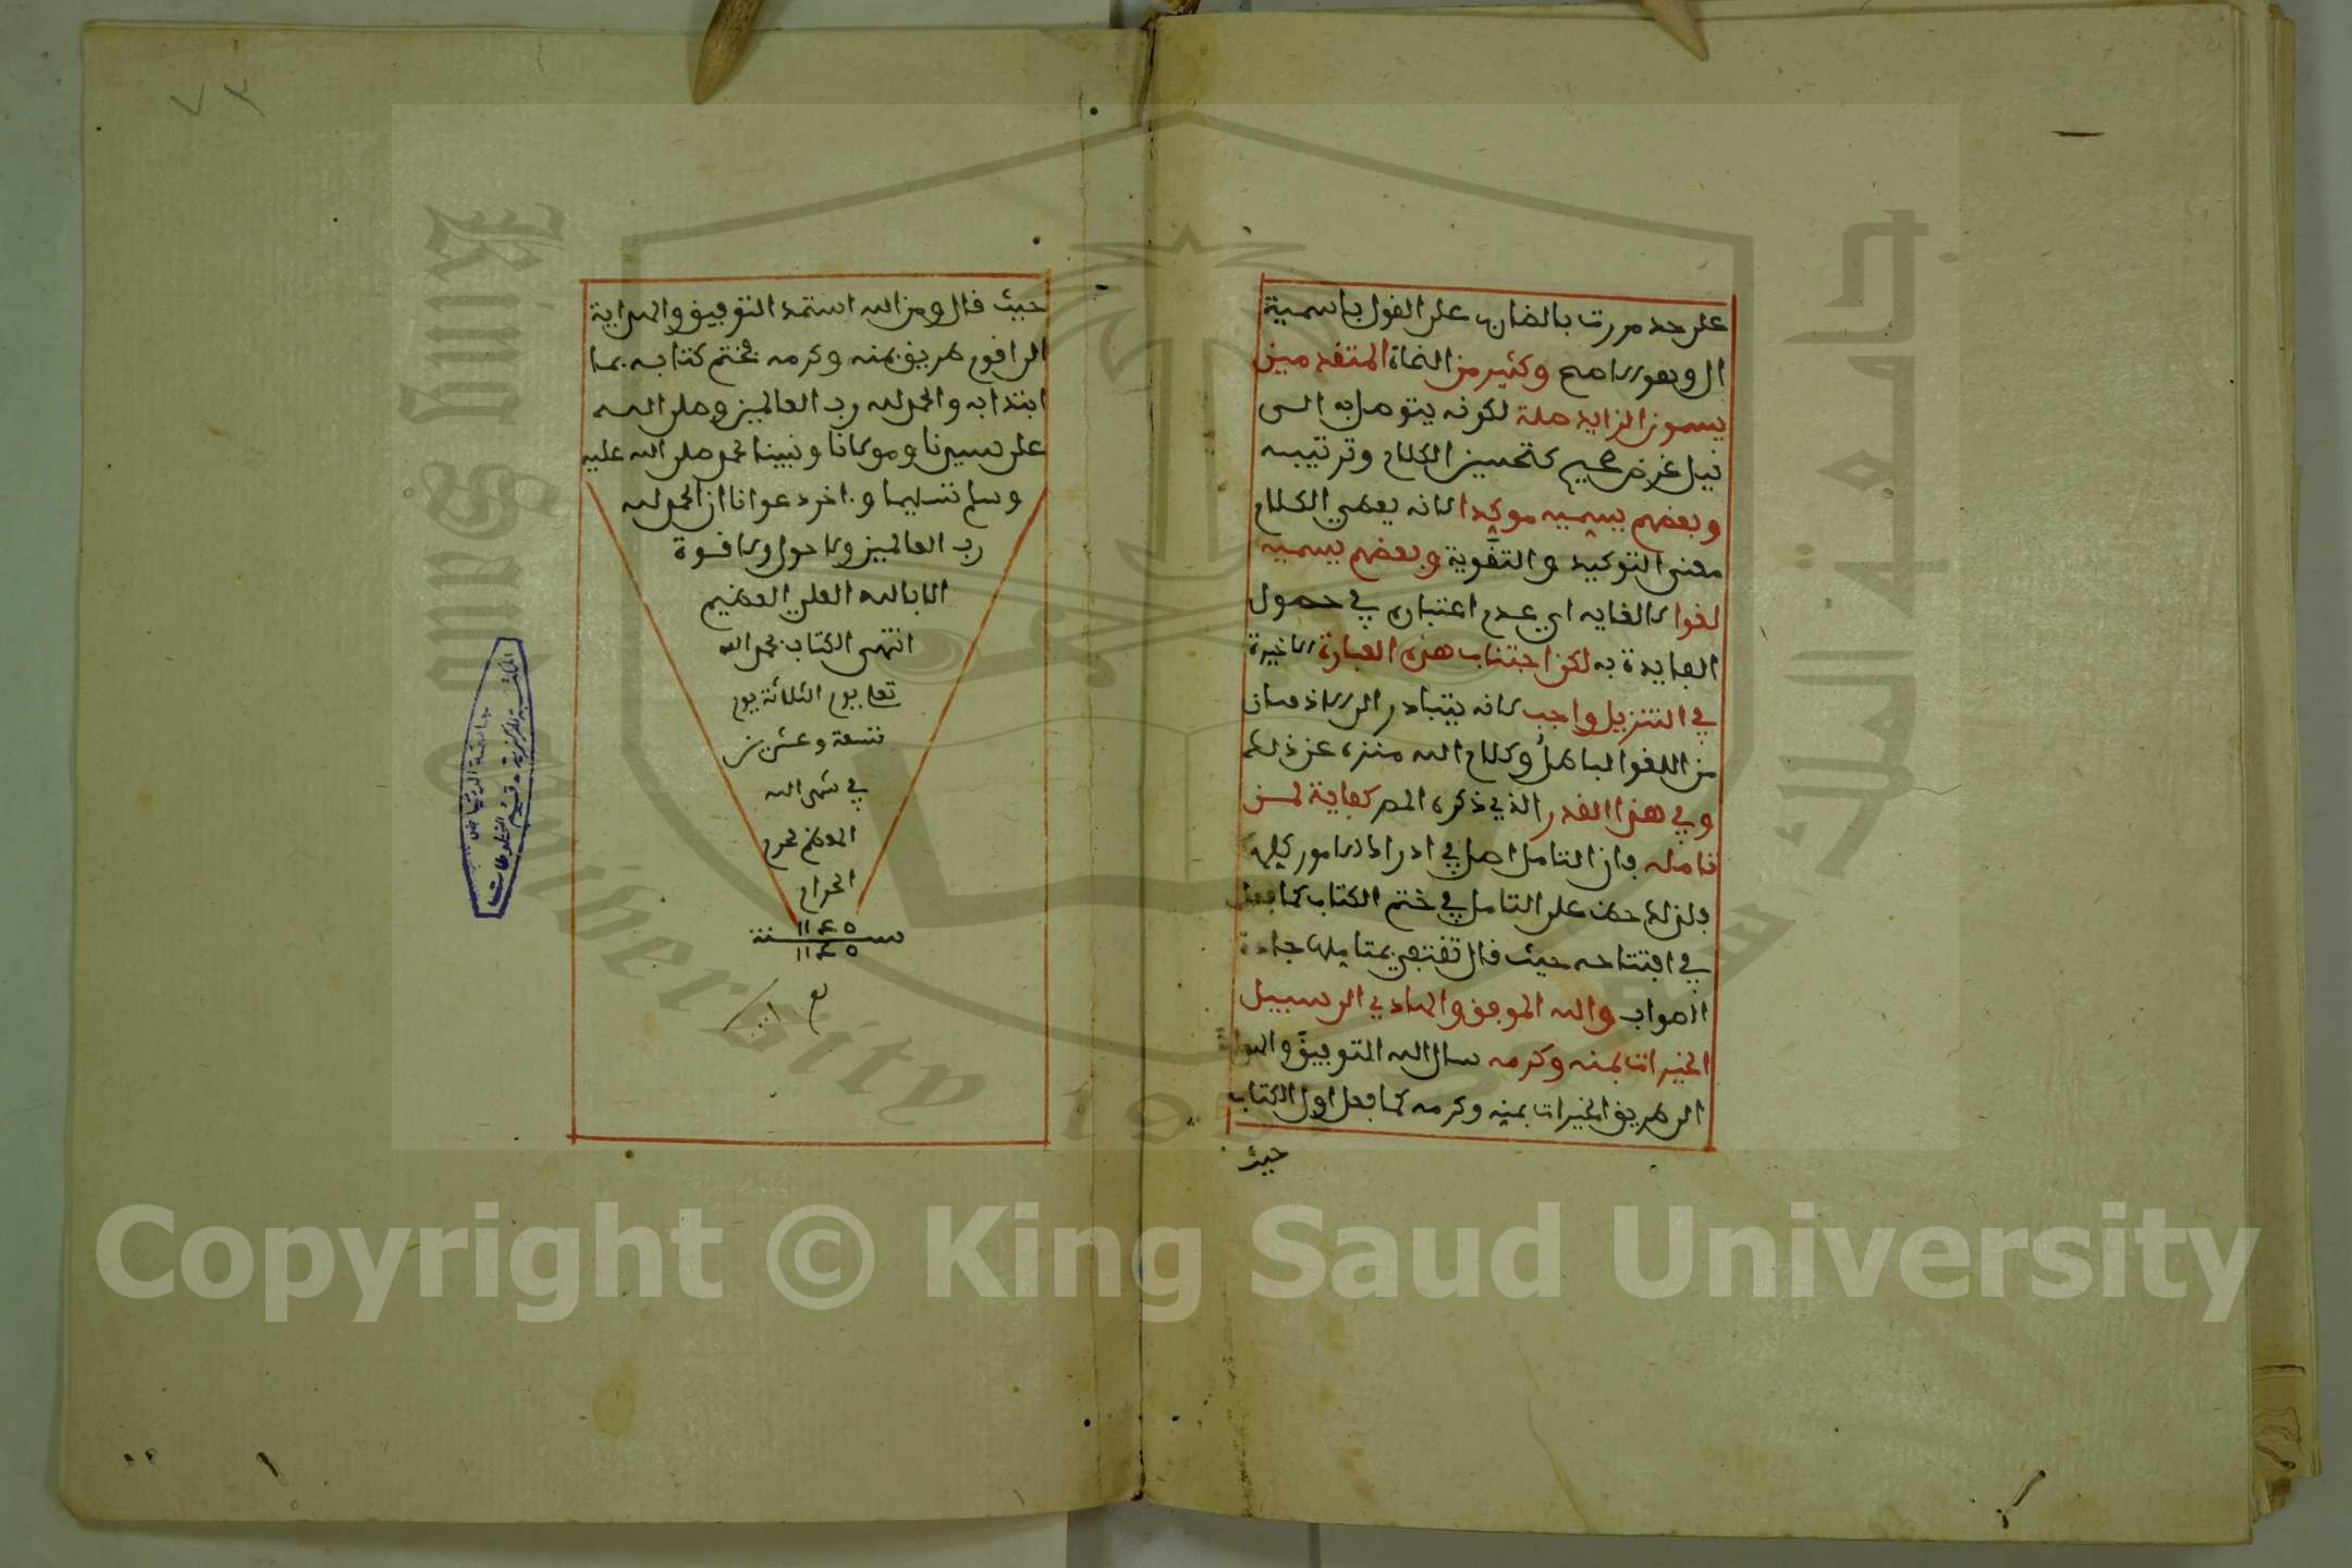 على حد مررت بالضارب على القول باسمية
ال وهو الاصح وكثير من النحاة المتقدمين
يسمون الزايد صلة لكونه يتوصل به الى
نيل غرض صحيح كتحسين الكلام وترتيبه
وبعضهم يسميه موكدا لانه يعطي الكلام
معنى التوكيد والتقوية وبعضهم يسميه
لغوا لالغايه اي عدم اعتباره في حصول
الفايدة به لكن اجتناب هذه العبارة الاخيرة
في التنزيل واجب لانه يتبادر الى الاذهان
من اللغو الباطل وكلام الله منزه عن ذلك
وفي هذا القدر الذي ذكره المص كفاية لمن
تامله فان التامل اصل في ادراك الامور كلها
فلذلك حث على التامل في ختم الكتاب كما فعل
في افتتاحه حيث قال تقتفي بمتاملها جادة
الصواب والله الموفق والهادي الى سبيل
الخيرات بمنه وكرمه سال الله التوفيق والهداية
الى طريق الخيرات بمنه وكرمه كما فعل اول الكتاب
حيث
٧٣
حيث قال ومن الله استمد التوفيق والهداية
الى اقوم طريق بمنه وكرمه فختم كتابه بما
ابتدا به والحمد لله رب العالمين وصلى الله
على سيدنا ومولانا ونبينا محمد صلى الله عليه
وسلم تسليما واخر دعوانا ان الحمد لله
رب العالمين ولا حول ولا قوة
الا بالله العلي العظيم
انتهى الكتاب بحمد الله
تعلى يوم الثلاثة يوم
تسعة وعشرين
في شهر الله
المعظم محرم
الحرام
١١٤٥
سنة
١١٤٥
جامعة الرياض
المكتبة المركزية - قسم المخطوطات
King Saud University
جامعة الملك سعود
Copyright © King Saud University